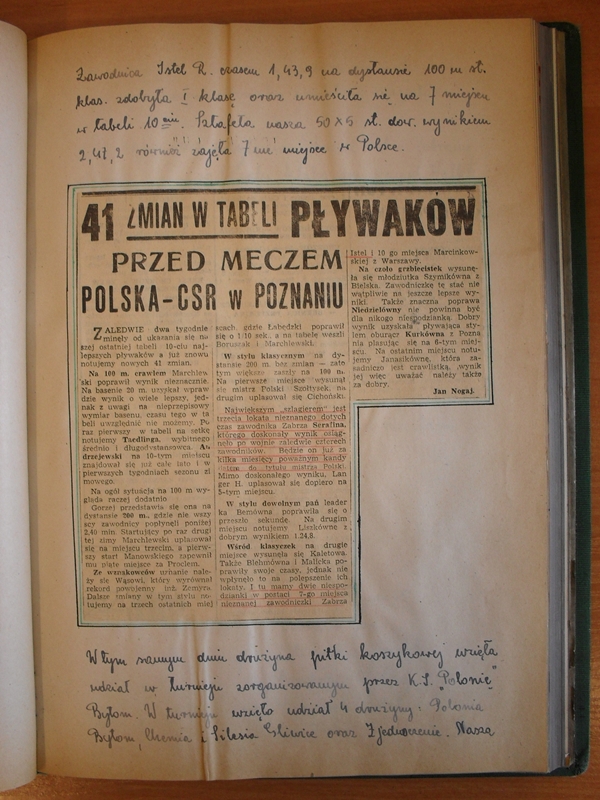 Zawodnica Istel R. czasem 1,43,9 na dystansie 100 m st.
klas. zdobyła I klasę oraz umieściła się na 7 miejscu
w tabeli 10 Sztafeta nasza 50 x 5 st. dow. wynikiem
2,47,2 również zajęła 7 me miejsce w Polsce.
41 ZMIAN W TABELI PŁYWAKÓW
PRZED MECZEM
POLSKA-CSR w POZNANIU
ZALEDWIE dwa tygodnie
minęły od ukazania się na
szej ostatniej tabeli 10-ciu naj-
lepszych pływaków a już znowu
notujemy nowych 41 zmian.
Na 100 m. crawlem Marchlew
ski poprawił wynik nieznacznie.
Na basenie 20 m. uzyskał wpraw
dzie wynik o wiele lepszy, jed-
nak z uwagi na nieprzepisowy
wymiar basenu, czasu tego w ta
beli uwzględnić nie możemy. Po
raz pierwszy w tabeli na setkę
notujemy Taedlinga, wybitnego
średnio i długodystansowca. An
drzejewski na 10-tym miejscu
znajdował się już całe lato i w
pierwszych tygodniach sezonu zi
mowego.
Na ogół sytuacja na 100 m wy-
gląda raczej dodatnio
Gorzej przedstawia się ona na
dystansie 200 m., gdzie nie wszy
scy zawodnicy popłynęli poniżej
2,40 min. Startujący po raz drugi
tej zimy Marchlewski uplasował
się na miejscu trzecim, a pierw-
szy start Manowskiego zapewnił
mu piąte miejsce za Proclem.
Ze wznakowców uznanie nale-
ży się Wąsowi, który wyrównał
rekord powojenny inż. Zemyra
Dalsze zmiany w tym stylu no-
tujemy na trzech ostatnich miej
scach, gdzie Łabędzki poprawił
się o 1/10 sek., a na tabelę weszli
Boruszak i Marchlewski.
W stylu klasycznym na dy-
stansie 200 m bez zmian — zato
tym większe zaszły na 100 m.
Na pierwsze miejsce wysunął
się mistrz Polski Szołtysek, na
drugim uplasował się Cichoński.
Największym „szlagierem" jest
trzecia lokata nieznanego dotych
czas zawodnika Zabrza Serafina,
którego doskonały wynik osiąg-
nęło po wojnie zaledwie czterech
zawodników. Będzie on już za
kilka miesięcy poważnym kandy
datem do tytułu mistrza Polski.
Mimo doskonałego wyniku, Lan
ger H. uplasował się dopiero na
5-tym miejscu.
W stylu dowolnym pań leader
ka Bemówna poprawiła się o
przeszło sekundę. Na drugim
miejscu notujemy Liszkównę z
dobrym wynikiem 1.24,8.
Wśród klasyczek na drugie
miejsce wysunęła się Kaletowa.
Także Biehnówna i Malicka po-
prawiły swoje czasy, jednak nie
wpłynęło to na polepszenie ich
lokaty. I tu mamy dwie niespo-
dzianki w postaci 7-go miejsca
nieznanej zawodniczki Zabrza
Istel i 10 go miejsca Marcinkow-
skiej z Warszawy.
Na czoło grzbiecistek wysunę-
ła się młodziutka Szymikówna z
Bielska. Zawodniczkę tę stać nie
wątpliwie na jeszcze lepsze wy-
niki. Także znaczna poprawa
Niedzielówny nie powinna być
dla nikogo niespodzianką. Dobry
wynik uzyskała pływająca sty-
lem oburącz Kurkówna z Pozna
nia plasując się na 6-tym miej-
scu. Na ostatnim miejscu notu-
jemy Janasikównę, która za-
sadniczo jest crawlistką, wynik
jej więc uważać należy także
za dobry.
Jan Nogaj.
W tym samym dniu drużyna piłki koszykowej wzięła
udział w turnieju zorganizowanym przez K.S. „Polonię"
Bytom. W turnieju wzięło udział 4 drużyny: Polonia
Bytom, Chemia i Silesia Gliwice oraz Zjednoczenie. Nasza